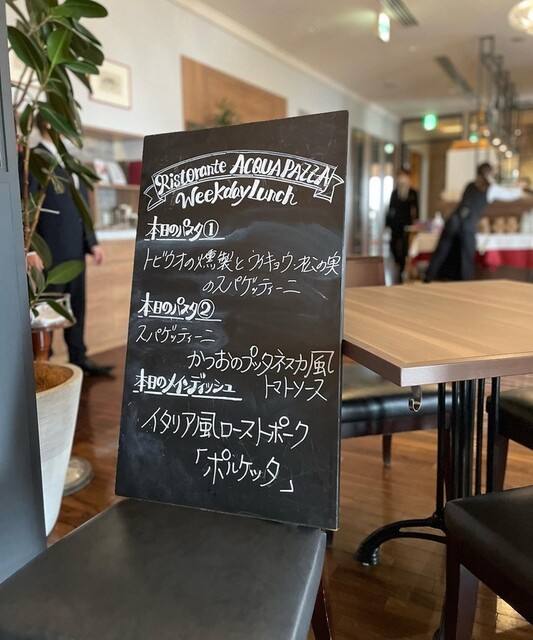 Ristorante ACQUAPAZZA
Weekday Lunch
本日のパスタ①
トビウオの燻製とウイキョウ、松の実
のスパゲッティーニ
本日のパスタ②
スパゲッティーニ
かつおのプッタネスカ風
トマトソース
本日のメインディッシュ
イタリア風ローストポーク
「ポルケッタ」